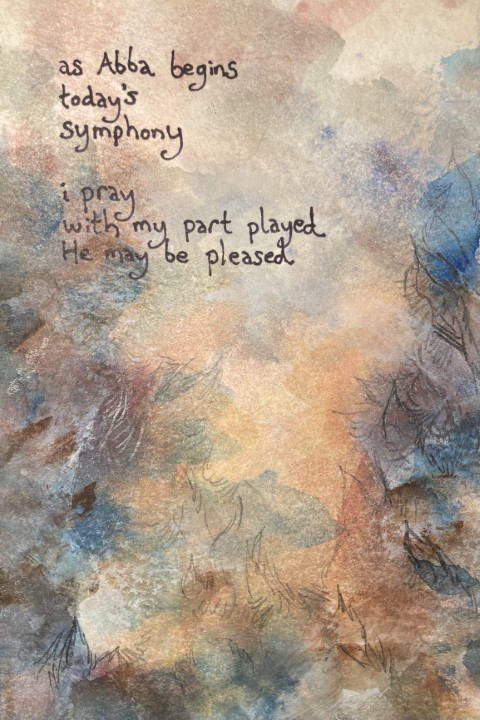 as Abba begins
today's
symphony
i pray
with my part played
He may be pleased